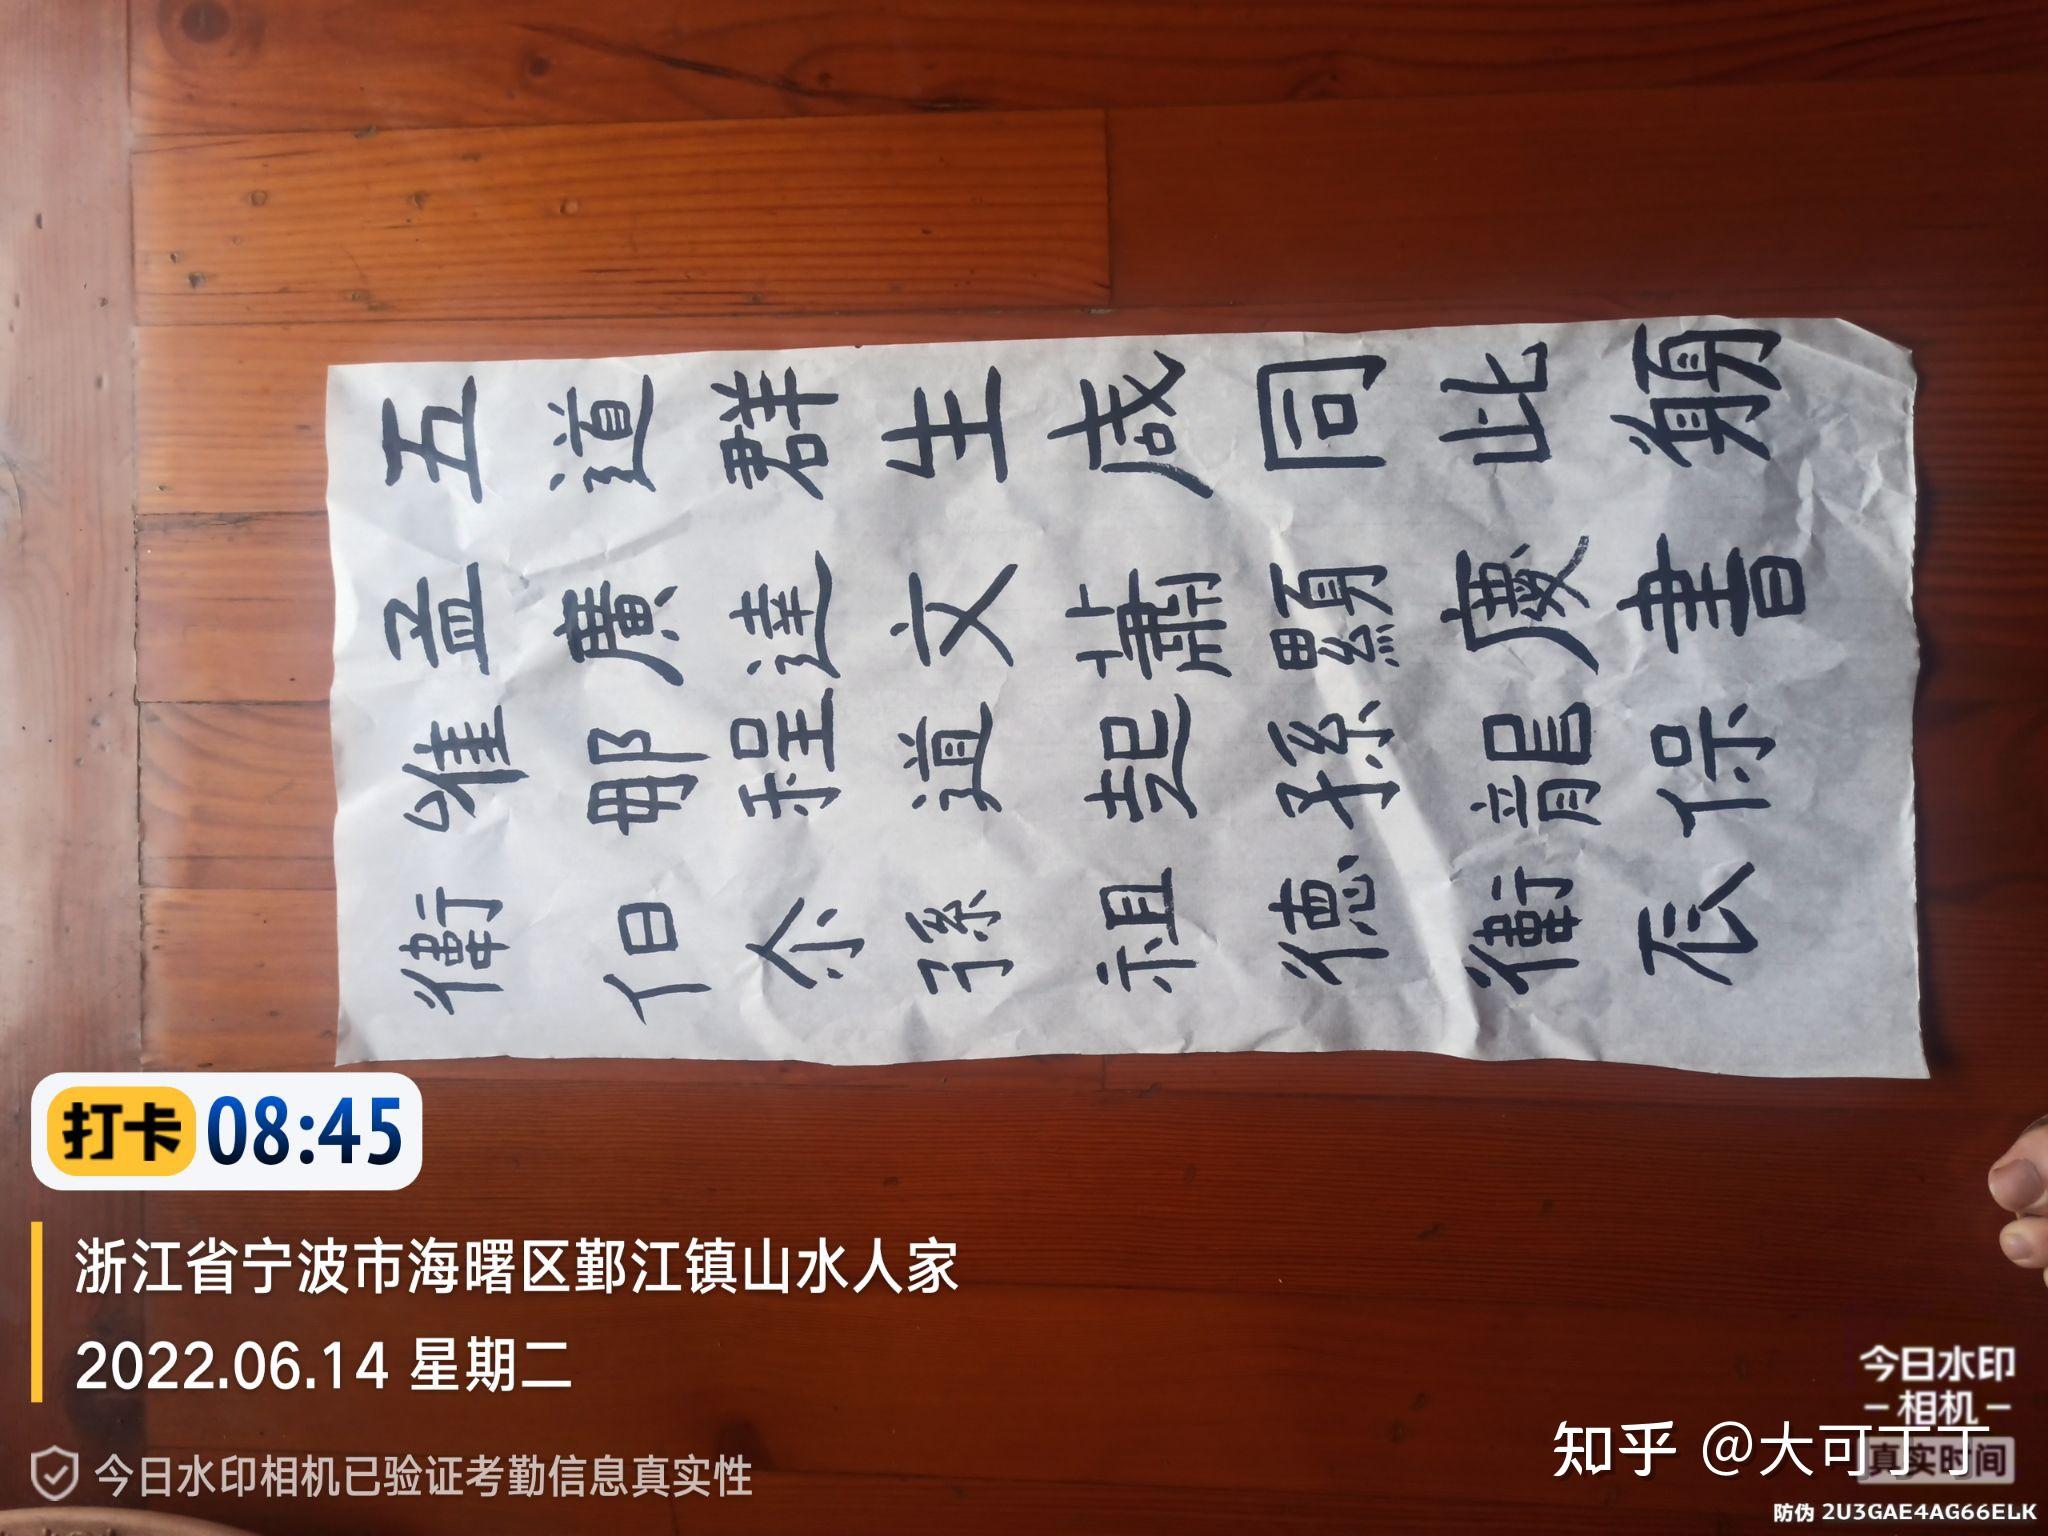 五道群生咸同此願
孟廣達文蕭顯慶書
唯那程道起孫龍保
衛伯尒孫祖德衛辰
打卡 08:45
浙江省宁波市海曙区鄞江镇山水人家
2022.06.14 星期二
今日水印相机已验证考勤信息真实性
今日水印
相机
真实时间
知乎 @大可丁丁
防伪 2U3GAE4AG66ELK